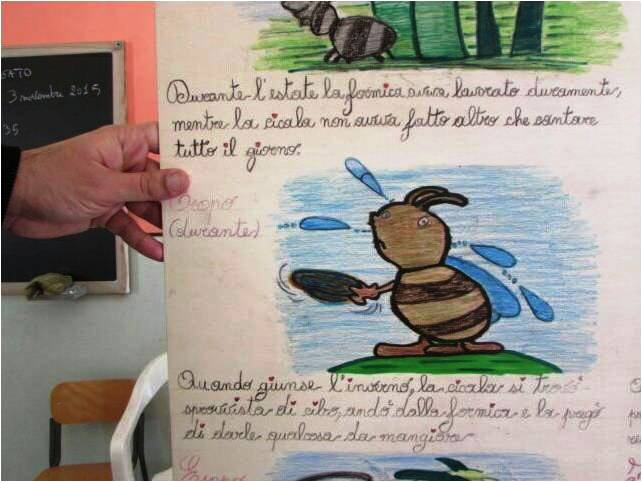 3 novembre 2015
35
Durante l'estate la formica aveva lavorato duramente,
mentre la cicala non aveva fatto altro che cantare
tutto il giorno.
Dopo
(durante)
Quando giunse l'inverno, la cicala si trovò
sprovvista di cibo, andò dalla formica e la pregò
di darle qualcosa da mangiare